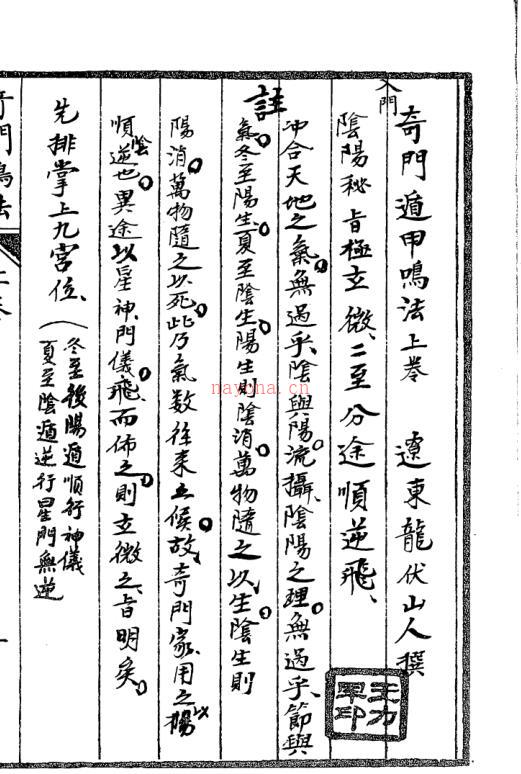 入門
奇門遁甲鳴法上卷 遼東龍伏山人撰
陰陽秘旨極玄微、二至分途順逆飛、
註
冲合天地之氣。無過乎陰與陽。流攝陰陽之理。無過乎節與
氣。冬至陽生。夏至陰生。陽生則陰消。萬物隨之以生。陰生則
陽消。萬物隨之以死。此乃氣数往来之候。故奇門家用之以陽
順陰逆也。異途以星神門儀飛而佈之。則玄微之旨明矣。
先排掌上九宮位、(冬至後陽遁順行神儀
夏至陰遁逆行星門無逆
奇門鳴法
上卷
一
王力軍印
nayona.cn